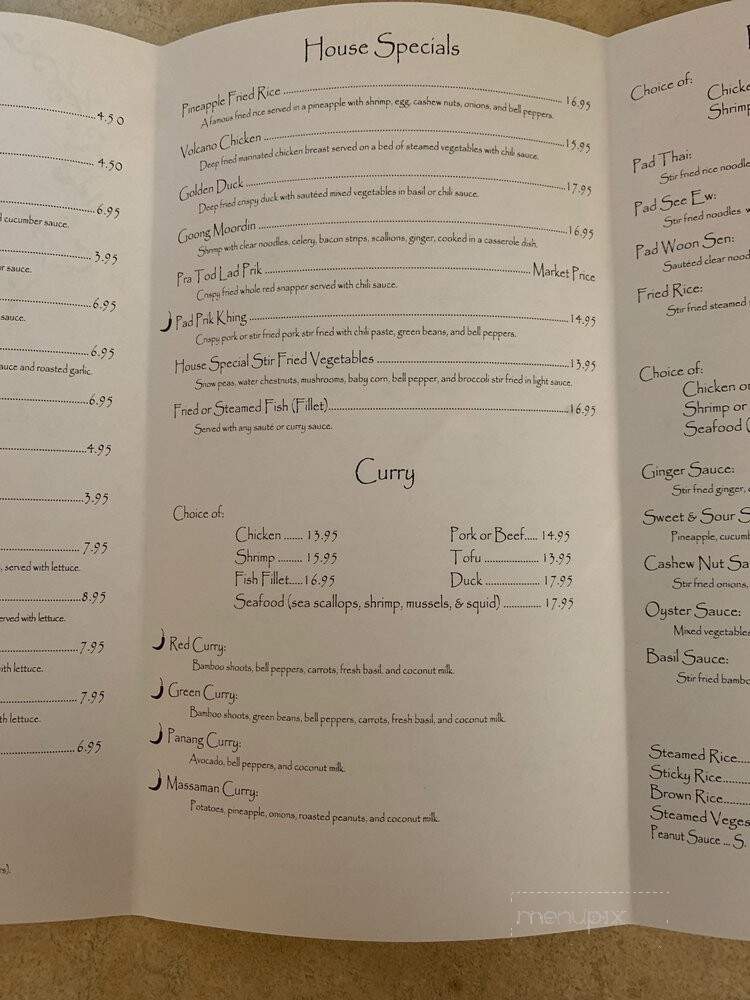 4.50
4.50
6.95
cucumber sauce.
3.95
sauce.
6.95
sauce.
6.95
sauce and roasted garlic.
6.95
4.95
3.95
7.95
served with lettuce.
8.95
served with lettuce.
7.95
with lettuce.
7.95
with lettuce.
6.95
House Specials
Pineapple Fried Rice 16.95
A famous fried rice served in a pineapple with shrimp, egg, cashew nuts, onions, and bell peppers.
Volcano Chicken 15.95
Deep fried marinated chicken breast served on a bed of steamed vegetables with chili sauce.
Golden Duck 17.95
Deep fried crispy duck with sautéed mixed vegetables in basil or chili sauce.
Goong Moordin 16.95
Shrimp with clear noodles, celery, bacon strips, scallions, ginger, cooked in a casserole dish.
Pra Tod Lad Prik Market Price
Crispy fried whole red snapper served with chili sauce.
Pad Prik Khing 14.95
Crispy pork or stir fried pork stir fried with chili paste, green beans, and bell peppers.
House Special Stir Fried Vegetables 13.95
Snow peas, water chestnuts, mushrooms, baby corn, bell pepper, and broccoli stir fried in light sauce.
Fried or Steamed Fish (Fillet) 16.95
Served with any sauté or curry sauce.
Curry
Choice of:
Chicken ...... 13.95 Pork or Beef..... 14.95
Shrimp ........ 15.95 Tofu ..................... 13.95
Fish Fillet.....16.95 Duck ..................... 17.95
Seafood (sea scallops, shrimp, mussels, & squid) ............. 17.95
Red Curry:
Bamboo shoots, bell peppers, carrots, fresh basil, and coconut milk.
Green Curry:
Bamboo shoots, green beans, bell peppers, carrots, fresh basil, and coconut milk.
Panang Curry:
Avocado, bell peppers, and coconut milk.
Massaman Curry:
Potatoes, pineapple, onions, roasted peanuts, and coconut milk.
Choice of: Chicke
Shrimp
Pad Thai:
Stir fried rice noodle
Pad See Ew:
Stir fried noodles w
Pad Woon Sen:
Sautéed clear nood
Fried Rice:
Stir fried steamed
Choice of:
Chicken or
Shrimp or
Seafood (
Ginger Sauce:
Stir fried ginger,
Sweet & Sour S
Pineapple, cucumb
Cashew Nut Sa
Stir fried onions,
Oyster Sauce:
Mixed vegetable
Basil Sauce:
Stir fried bambo
Steamed Rice....
Sticky Rice........
Brown Rice........
Steamed Veges
Peanut Sauce ... S.
menupix